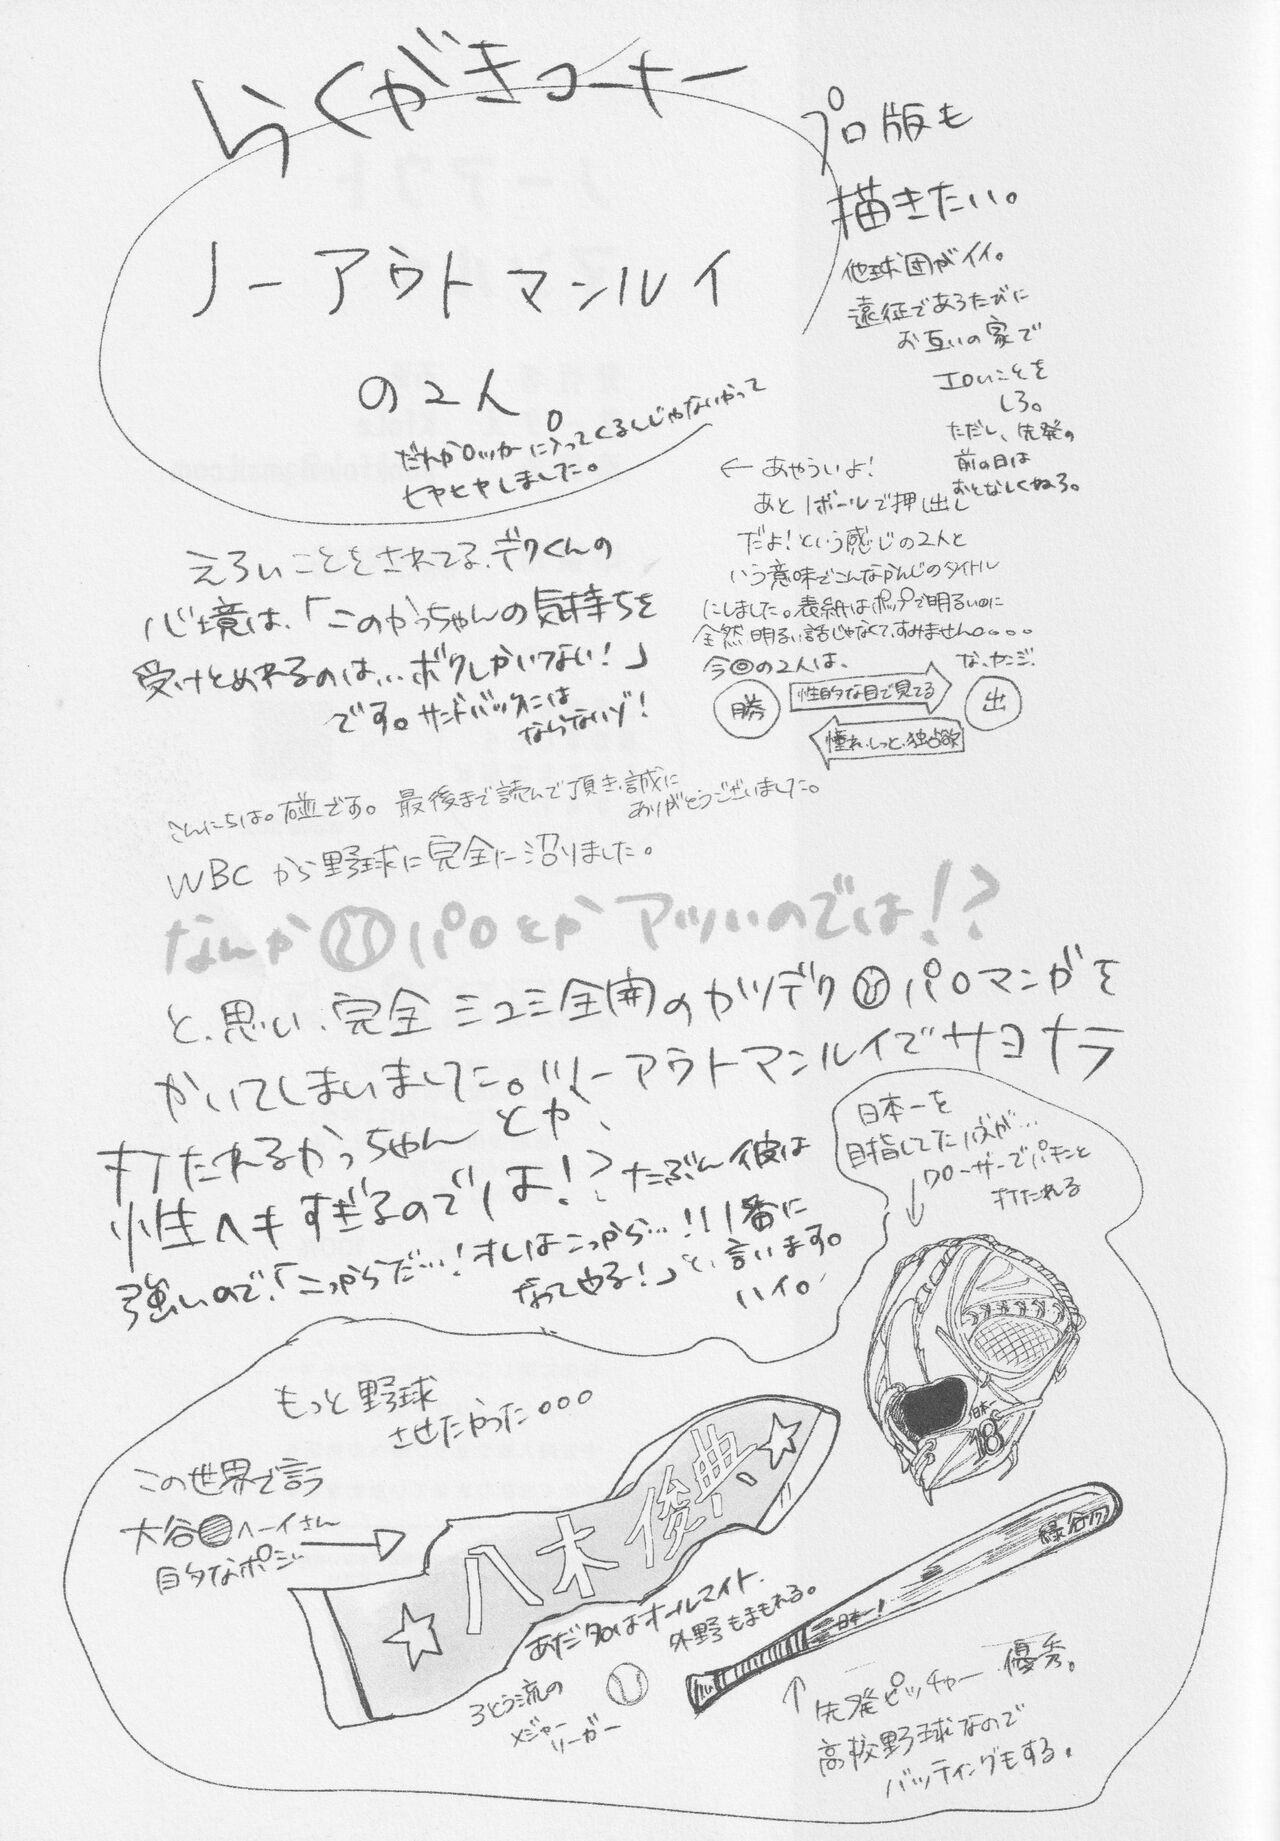 らくがきコーナー
ノーアウトマンルイ
の2人。
だれかロッカーに入ってくるんじゃないかって
ヒヤヒヤしました。
プロ版も
描きたい。
他球団がイイ。
遠征であるたびに
お互いの家で
エロいことを
しろ。
ただし、先発の
前の日は
おとなしくねろ。
← あやういよ!
あと1ボールで押し出し
だよ!という感じの2人と
いう意味でこんなかんじのタイトル
にしました。表紙はポップで明るいのに
全然明るい話じゃなくて、すみません。。。。
今回の2人は、
な、カンジ。
勝
性的な目で見てる
出
憧れ、しっと、独占欲
えろいことをされてる、デクくんの
心境は、「このかっちゃんの気持ちを
受けとめれるのは…ボクしかいない!」
です。サンドバックには
ならないゾ!
こんにちは。碰です。最後まで読んで頂き、誠に
ありがとうございました。
WBCから野球に完全に沼りました。
なんか パロとか アツいのでは!?
と、思い、完全ミユミ全開のカツデク パロマンガを
かいてしまいました。ノーアウトマンルイでサヨナラ
打たれるかっちゃんとか、
性ヘキすぎるのでは!?たぶん彼は
強いので、「こっからだ…!オレはこっから…!!1番に
なってやる!」と、言います。
ハイ。
日本一を
目指してたハズが…
クローザーでパキンと
打たれる
日本一
18
もっと野球
させたかった。。。
この世界で言う
大谷 ヘーイさん
的なポジ
八木俊典
あだ名はオールマイト、
外野もまもれる。
3とう流の
メジャー
リーガー
緑谷(7)
日本一!
先発ピッチャー 優秀。
高校野球なので
バッティングもする。